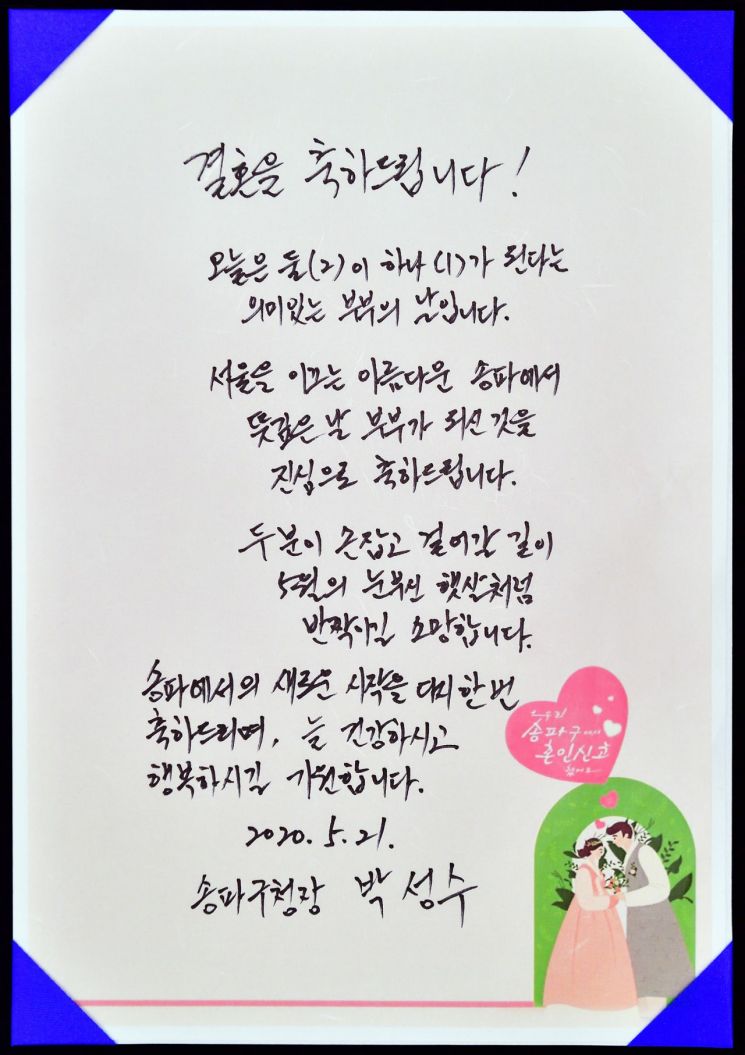 결혼을 축하드립니다!
오늘은 둘(2)이 하나(1)가 된다는
의미있는 부부의 날입니다.
서울을 이끄는 아름다운 송파에서
뜻깊은 날 부부가 되신 것을
진심으로 축하드립니다.
두 분이 손잡고 걸어갈 길이
5월의 눈부신 햇살처럼
반짝이길 소망합니다.
송파에서의 새로운 시작을 다시 한 번
축하드리며, 늘 건강하시고
행복하시길 기원합니다.
2020. 5. 21.
송파구청장 박성수
우리
송파구에서
혼인신고
했어요